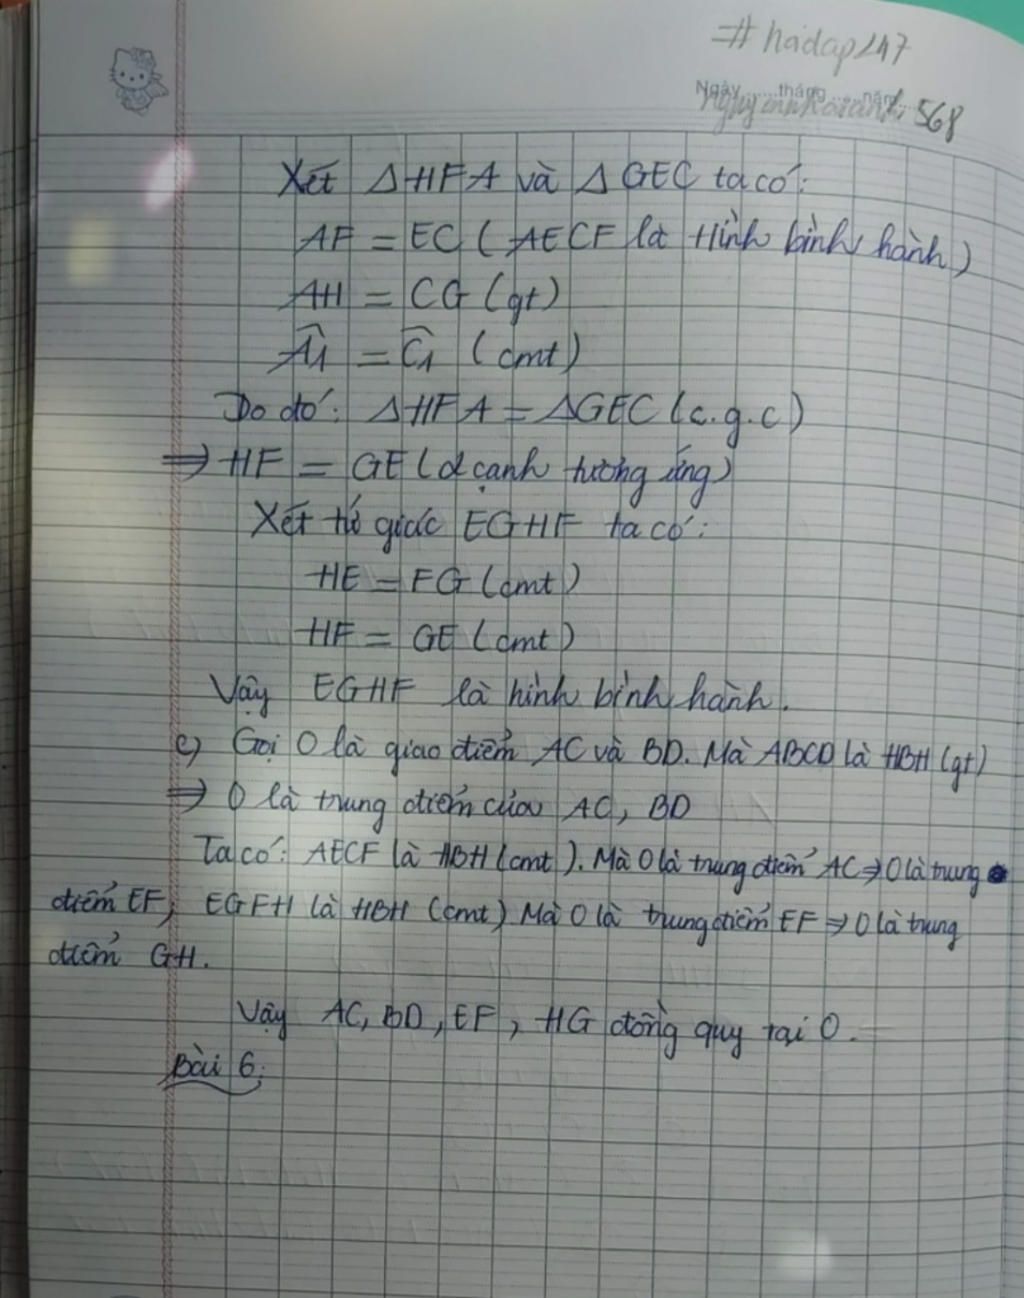 #hoidap247
Ngày......tháng......năm......
568
Xét △HFA và △GEC ta có:
AF = EC (AECF là Hình bình hành)
AH = CG (gt)
Â1 = Ĉ1 (cmt)
Do đó: △HFA = △GEC (c.g.c)
⇒ HF = GE (2 cạnh tương ứng)
Xét tứ giác EGHF ta có:
HE = FG (cmt)
HF = GE (cmt)
Vậy EGHF là hình bình hành.
c) Gọi O là giao điểm AC và BD. Mà ABCD là HBH (gt)
⇒ O là trung điểm của AC, BD
Ta có: AECF là HBH (cmt). Mà O là trung điểm AC ⇒ O là trung
điểm EF, EGFH là HBH (cmt) Mà O là trung điểm EF ⇒ O là trung
điểm GH.
Vậy AC, BD, EF, HG đồng quy tại O.
Bài 6: